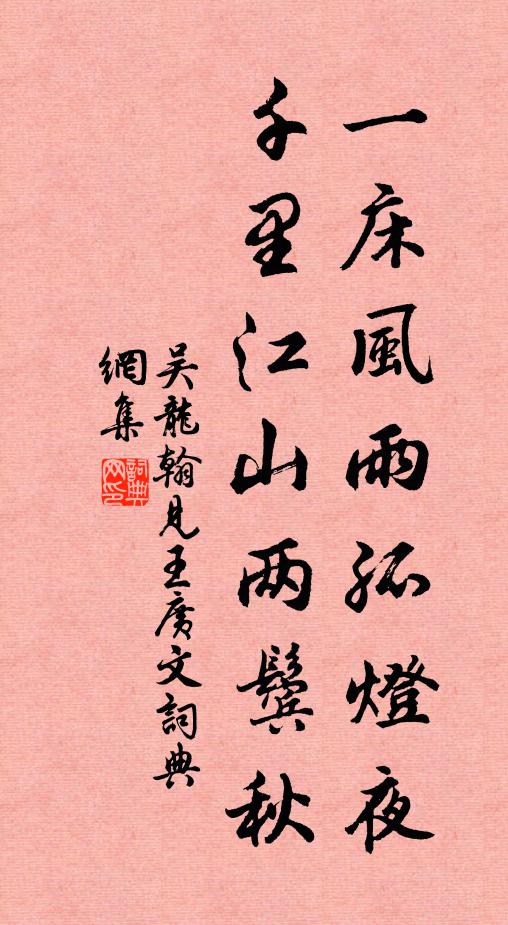 一床風雨孤燈夜
千里江山两鬢秋
吴龍翰見王廣文詞典
網集
詞典网印